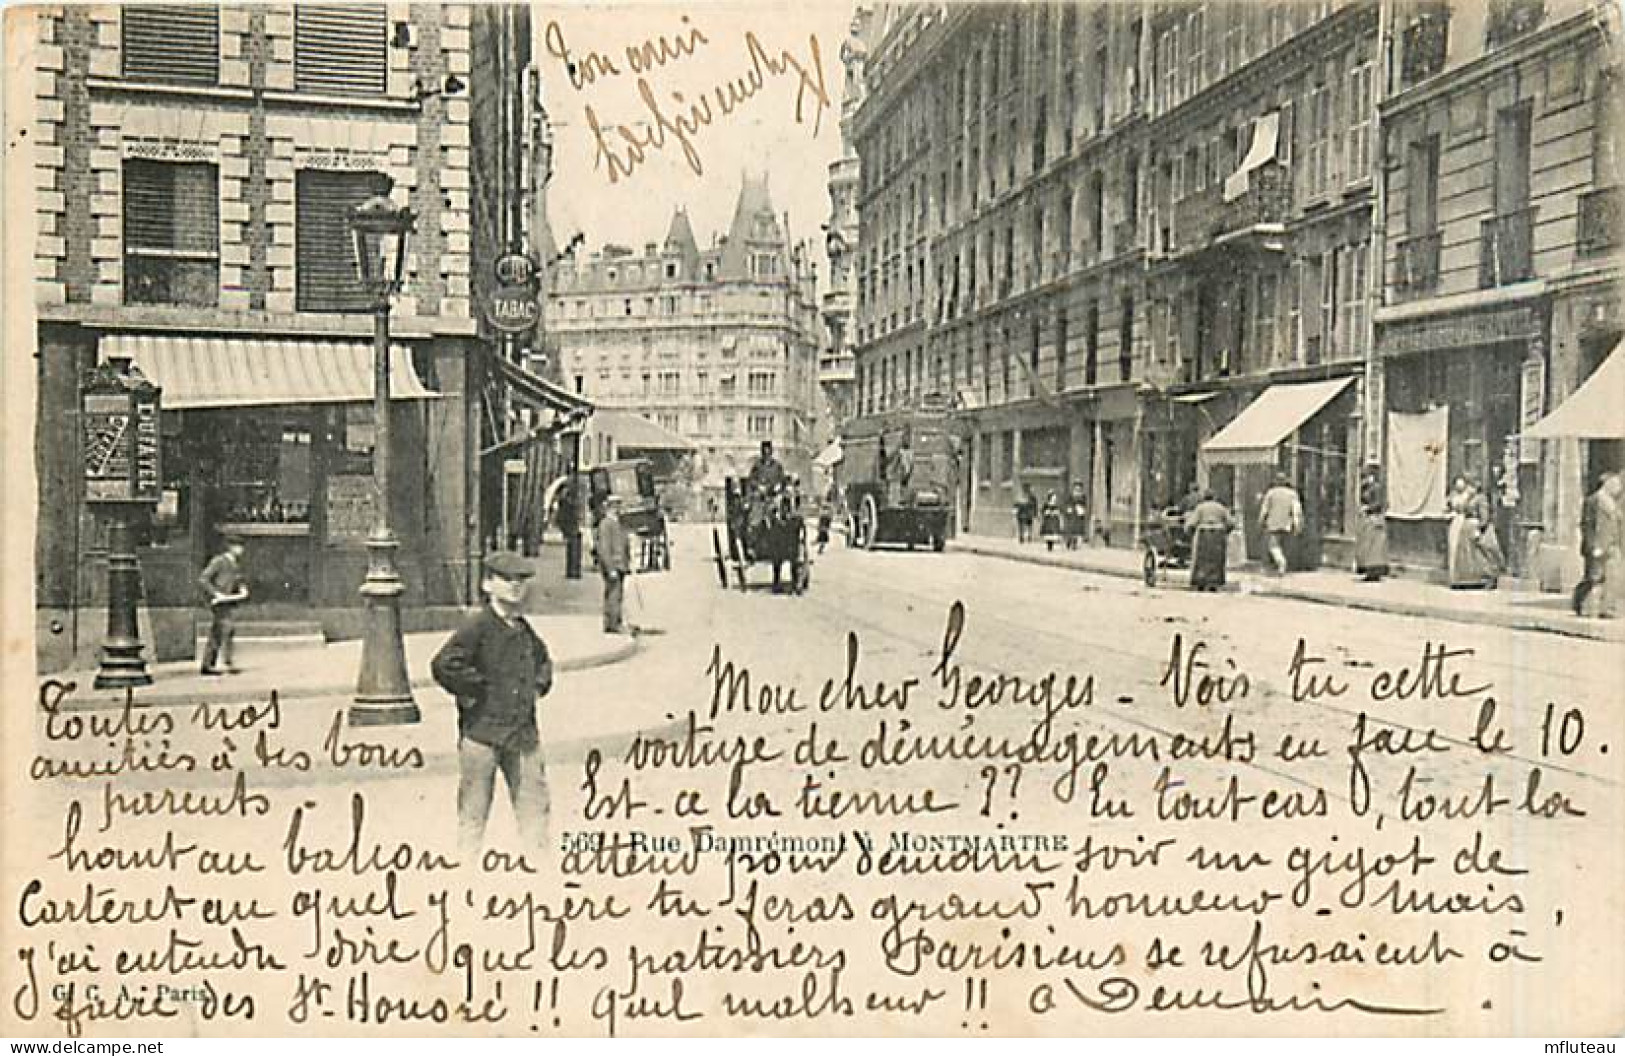 Ton ami
TABAC
DUFAYEL
Mon cher Georges - Vois tu cette
voiture de déménagements en face le 10.
Est-ce la tienne ?? En tout cas, tout la
haut au balcon on attend pour demain soir un gigot de
Carteret au quel j'espère tu feras grand honneur - Mais,
j'ai entendu dire que les patissiers Parisiens se refusaient à
faire des St-Honoré !! quel malheur !! à Demain.
Toutes nos
amitiés à tes bons
parents -
569 Rue Damrémont à MONTMARTRE
G. C. A. Paris
mfluteau
delcampe.net